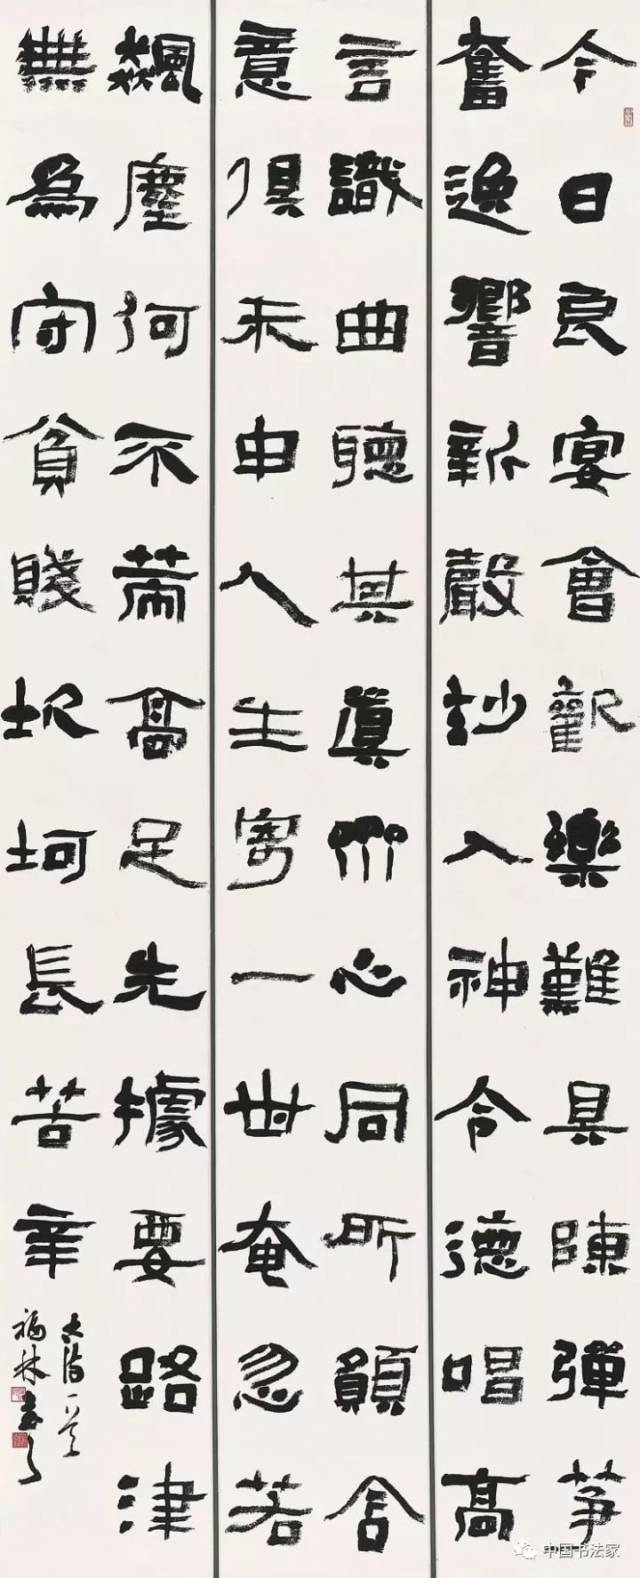 今日良宴會歡樂難具陳彈筝
奮逸響新聲妙入神令德唱高
言識曲聽其眞齊心同所願含
意俱未申人生寄一世奄忽若
飆塵何不策高足先據要路津
無為守貧賤坎坷長苦辛
古詩一首
福林書之
中国书法家